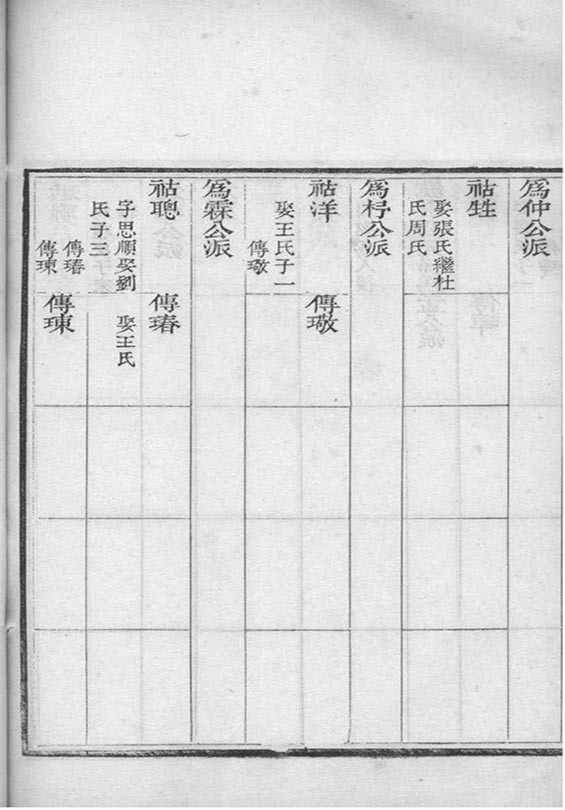 爲仲公派
祜甡
娶張氏繼杜
氏周氏
爲杼公派
祜洋
娶王氏子一
傳璥
傳璥
爲霖公派
祜聰
字思順娶劉
氏子三
傳瑃
傳㻋
傳瑃
娶王氏
傳㻋